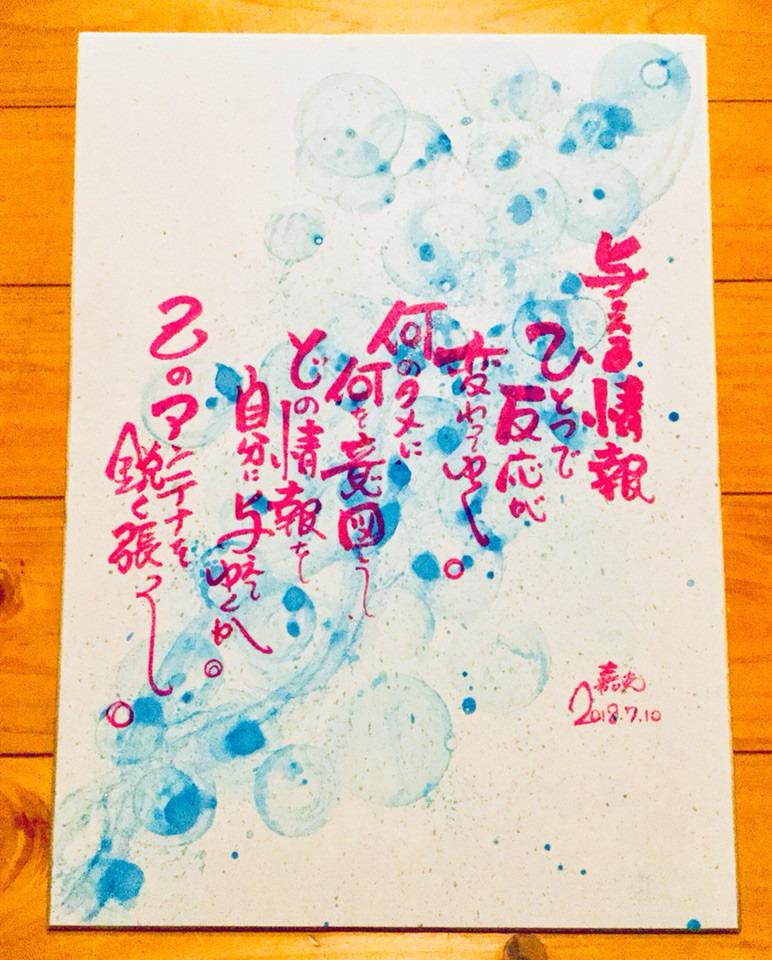 与える情報
ひとつで
反応が
変わってゆく。
何のタメに
何を意図して
どの情報を
自分に与えて
ゆくか。
己のアンテナを
鋭く張って。
嘉光
2018.7.10